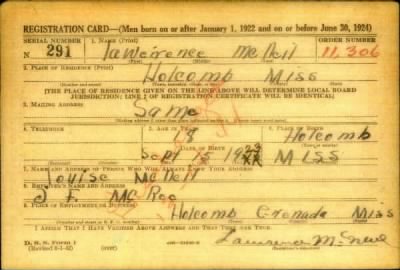 REGISTRATION CARD—(Men born on or after January 1, 1922 and on or before June 30, 1924)
SERIAL NUMBER 1. NAME (Print) ORDER NUMBER
N 291 Lawerence Mc Neil 11,306
2. PLACE OF RESIDENCE (Print)
Holcomb Miss
[THE PLACE OF RESIDENCE GIVEN ON THE LINE ABOVE WILL DETERMINE LOCAL BOARD
JURISDICTION; LINE 2 OF REGISTRATION CERTIFICATE WILL BE IDENTICAL]
3. MAILING ADDRESS
Same
4. TELEPHONE 5. AGE IN YEARS 6. PLACE OF BIRTH
18 Holcomb
DATE OF BIRTH
Sept 15 1923 Miss
7. NAME AND ADDRESS OF PERSON WHO WILL ALWAYS KNOW YOUR ADDRESS
Louise Mc Neil
8. EMPLOYER'S NAME AND ADDRESS
J. F. Mc Ree
9. PLACE OF EMPLOYMENT OR BUSINESS
Holcomb Grenada Miss
I AFFIRM THAT I HAVE VERIFIED ABOVE ANSWERS AND THAT THEY ARE TRUE.
D. S. S. Form 1
(Revised 6-1-42) (over)
Lawrence McNeil